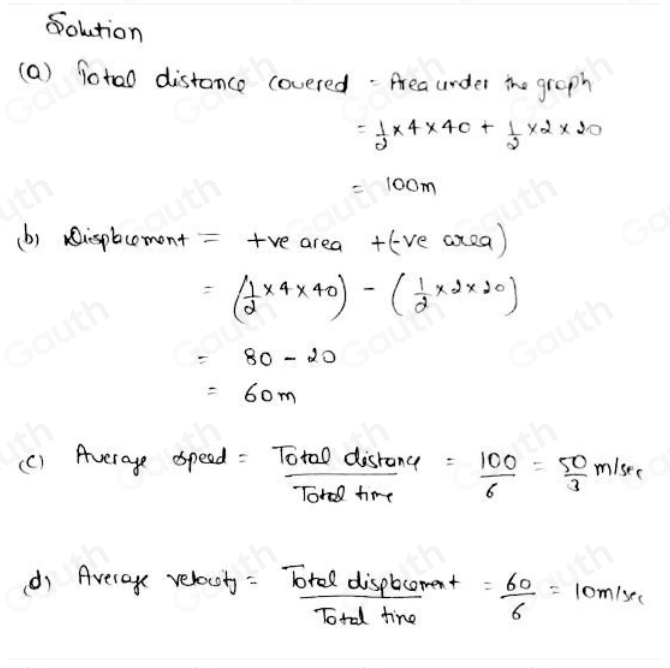 Solution
(a) Total distance covered = Area under the graph
= 1/2 × 4 × 40 + 1/2 × 2 × 20
= 100m
(b) Displacement = +ve area + (-ve area)
= (1/2 × 4 × 40) - (1/2 × 2 × 20)
= 80 - 20
= 60m
(c) Average speed = Total distance / Total time = 100/6 = 50/3 m/sec
(d) Average velocity = Total displacement / Total time = 60/6 = 10m/sec